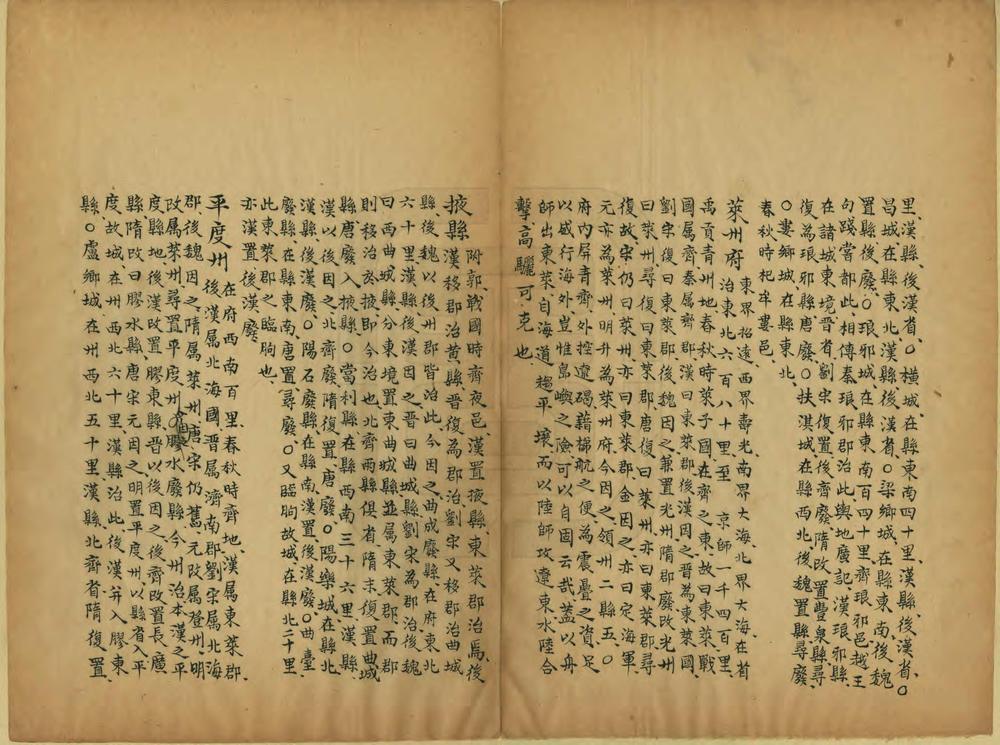 里、漢縣、後漢省、○橫城、在縣東南四十里、漢縣、後漢省、○
昌城、在縣東北、漢縣、後漢省、○梁鄉城、在縣東南、後魏
置縣、後廢、○琅邪城、在縣東南百四十里、齊琅邪邑、越王
句踐嘗都此、相傳秦琅邪郡治此、輿地廣記、漢琅邪縣、
在諸城東境、晉省、劉宋復置、後齊廢、隋改置豐泉縣、尋
復為琅邪縣、唐廢、○扶淇城、在縣西北、後魏置縣、尋廢、
○婁鄉城、在縣東北、
春秋時杞牟婁邑、
萊州府 東界招遠、西界壽光、南界大海、北界大海、在省
治東北六百八十里、至 京師一千四百里、
禹貢青州地、春秋時萊子國、在齊之東、故曰東萊、戰
國屬齊、秦屬齊郡、漢曰東萊郡、後漢因之、晉為東萊國、
劉宋復曰東萊郡、後魏因之、兼置光州、隋郡廢、改光州
曰萊州、尋復曰東萊郡、唐復曰萊州、亦曰東萊郡、尋
復故、宋仍曰萊州、亦曰東萊郡、金因之、亦曰定海軍、
元亦為萊州、明升為萊州府、今因之、領州二縣五、○
府內屏青齊、外控遼碣、藉梯航之便、為震疊之資、足
以威行海外、豈惟島嶼之險、可以自固云哉、蓋以舟
師出東萊、自海道趨平壤、而以陸師攻遼東、水陸合
擊、高驪可克也、
掖縣 附郭、戰國時齊夜邑、漢置掖縣、東萊郡治焉、後
漢移郡治黃縣、晉復為郡治、劉宋又移郡治曲城
縣、後魏以後、州郡皆治此、今因之、曲成廢縣、在府東北
六十里、漢縣、後漢因之、晉曰曲城縣、劉宋為郡治、後魏
曰西曲城縣、分東境置東曲城縣、並屬東萊郡、而郡
則移治於掖、即今治也、北齊兩縣俱省、隋末復置曲城
縣、唐廢入掖縣、○當利縣、在縣西南三十六里、漢縣、
漢以後因之、北齊廢、隋復置、唐廢、○陽樂城、在縣北、
漢縣、後漢廢、○陽石廢縣、在縣南、漢置、後漢廢、○曲臺
廢縣、在縣東南、唐置、尋廢、○又臨朐故城、在縣北二十里
此東萊郡之臨朐也、
亦漢置、後漢廢、
平度州 在府西南百里、春秋時齊地、漢屬東萊郡、
後漢屬北海國、晉屬濟南郡、劉宋屬北海
郡、後魏因之、隋屬萊州、唐宋仍舊、元改屬登州、明
改屬萊州、尋置平度州、○膠水廢縣、今州治、本漢之平
度縣地、後漢改置膠東縣、晉以後因之、後齊改置長廣
縣、隋改曰膠水縣、唐宋元因之、明置平度州、以縣省入、平
度故城、在州西北六十里、漢縣治此、後漢并入膠東
縣、○盧鄉城、在州西北五十里、漢縣、北齊省、隋復置、